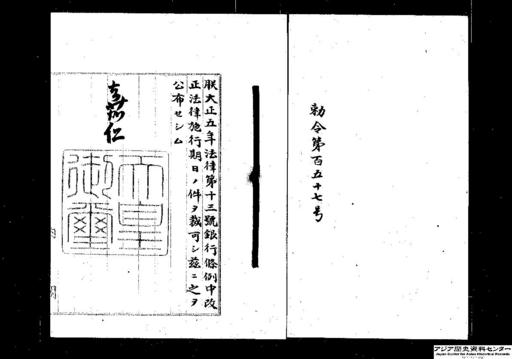 勅令第百五十七号
朕大正五年法律第十三號銀行條例中改
正法律施行期日ノ件ヲ裁可シ茲ニ之ヲ
公布セシム
嘉仁
天皇
御璽
アジア歴史資料センター
Japan Center for Asian Historical Records